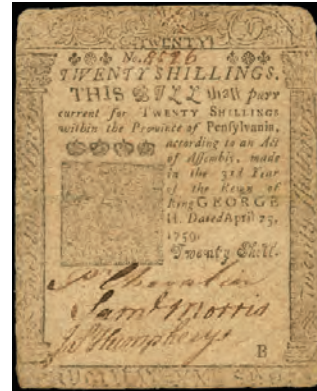 TWENTY
No. 8526
TWENTY SHILLINGS.
THIS BILL shall pass
current for TWENTY SHILLINGS
within the Province of Pensylvania,
according to an Act
of Assembly, made
in the 33d Year
of the Reign of
King GEORGE
II. Dated April 25,
1759.
Twenty Shill.
Chevalier
Saml Morris
Humphreys
B